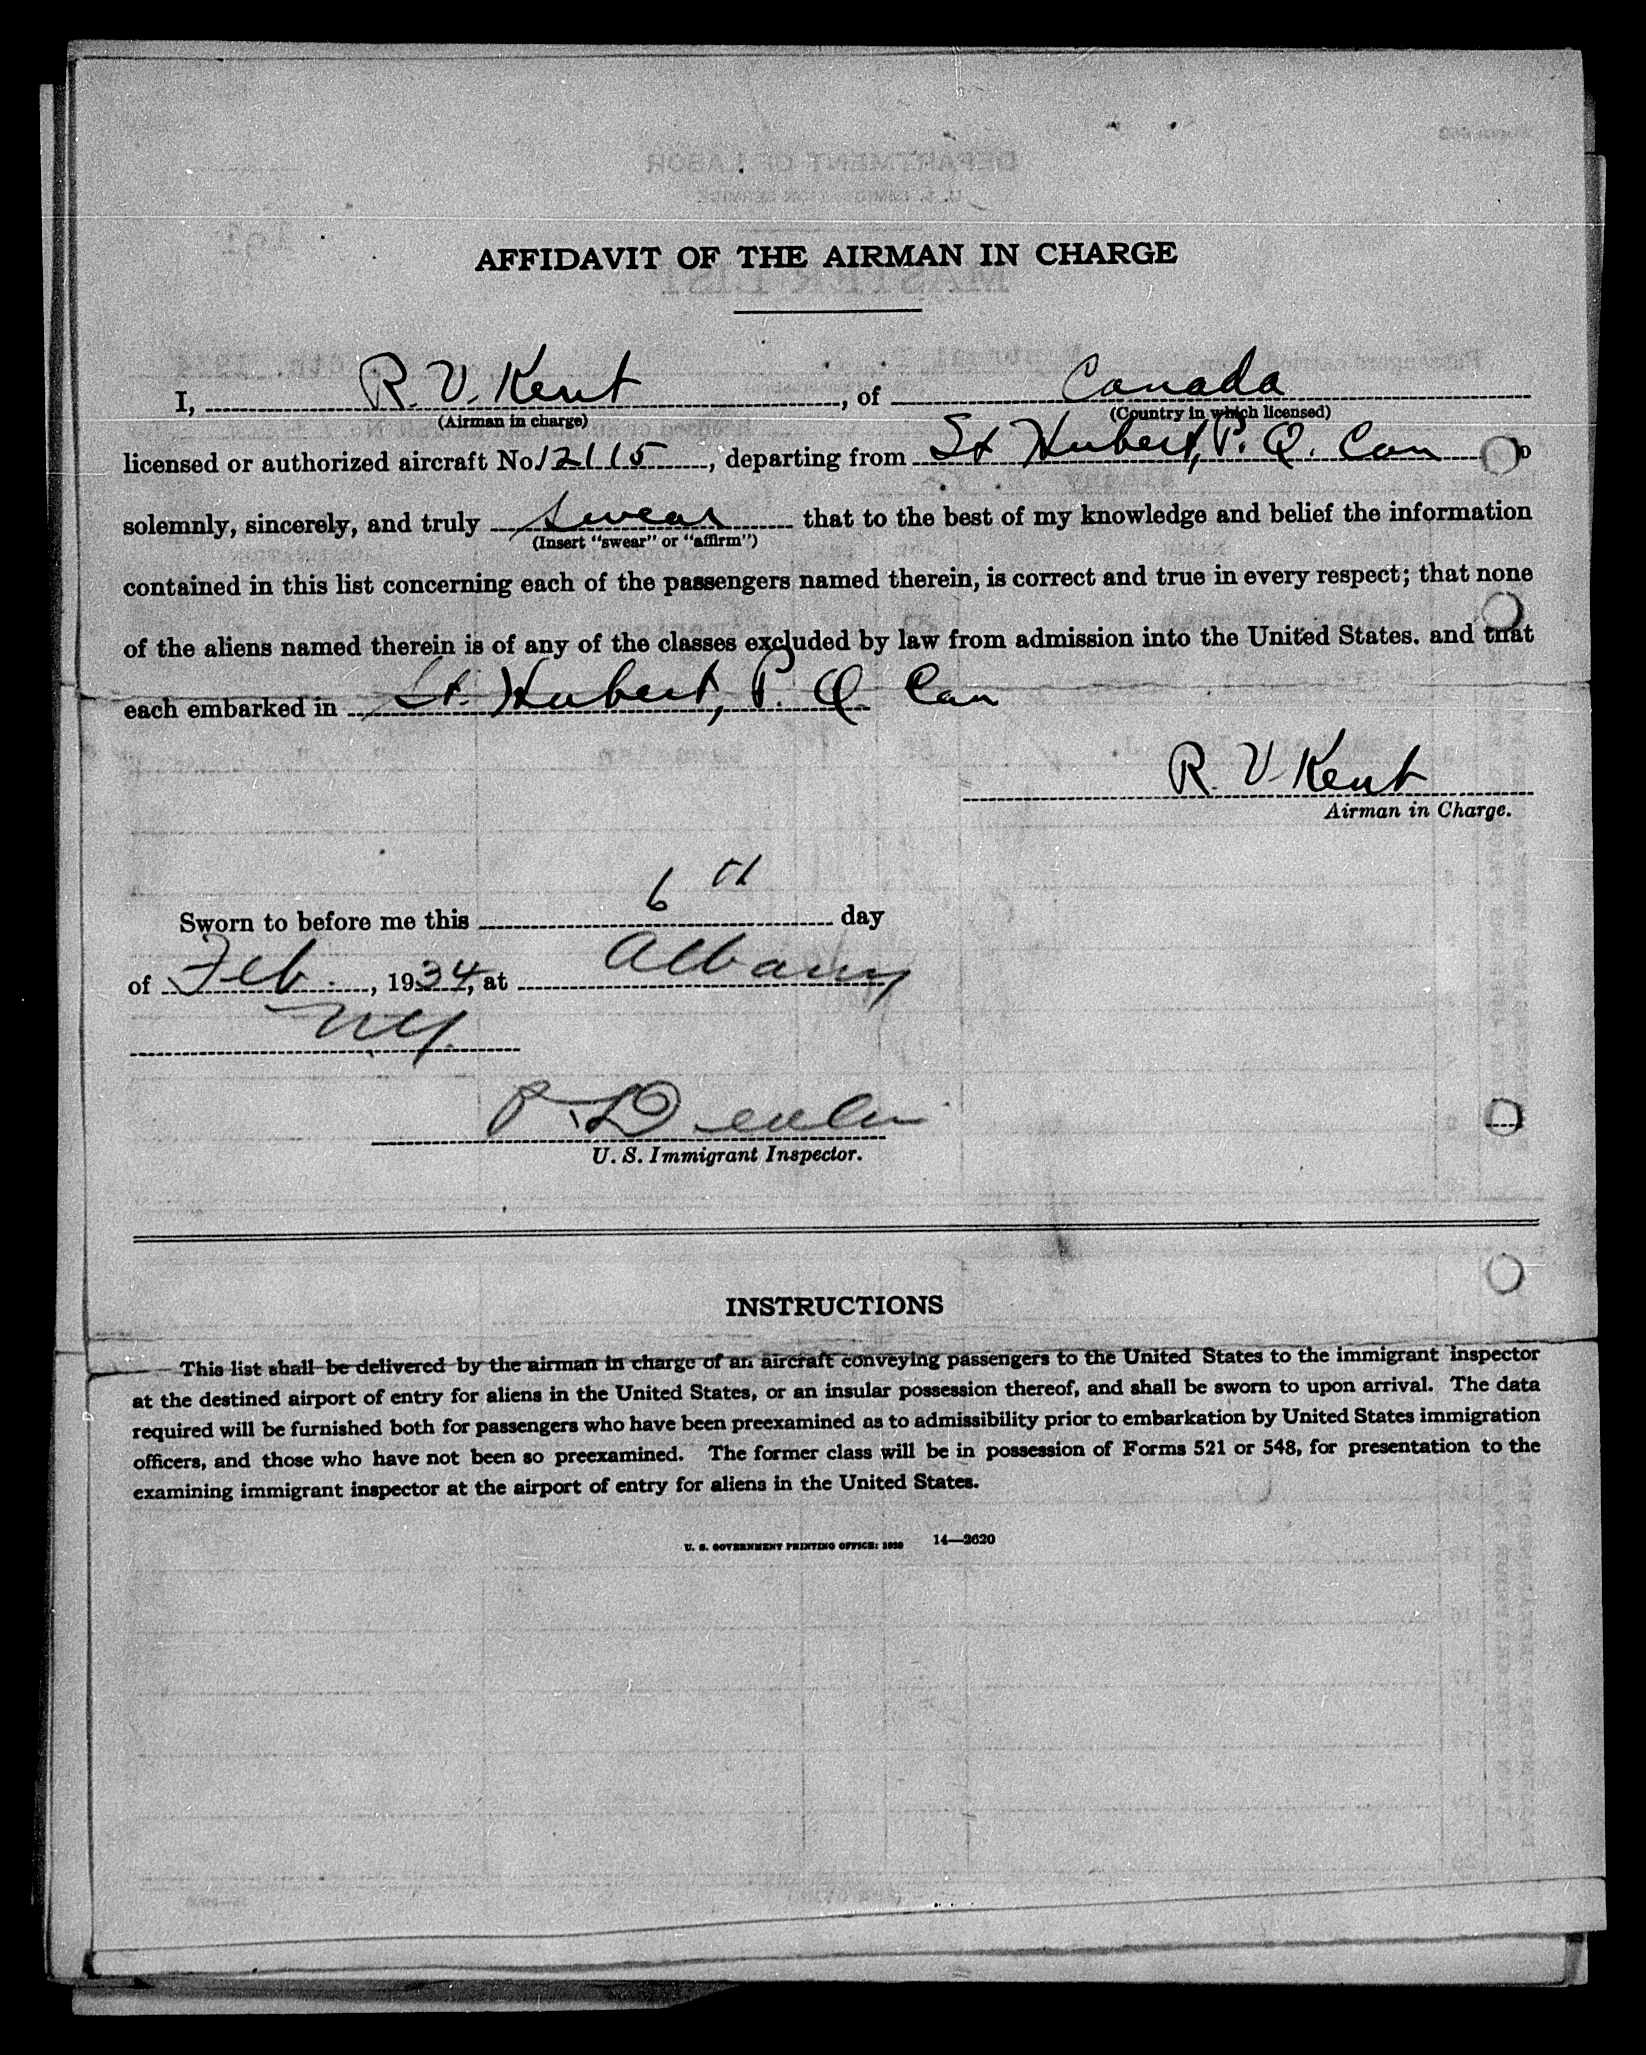 AFFIDAVIT OF THE AIRMAN IN CHARGE
I, R. V. Kent, of Canada
(Airman in charge) (Country in which licensed)
licensed or authorized aircraft No. 12115, departing from St Hubert, P. Q. Can
solemnly, sincerely, and truly swear that to the best of my knowledge and belief the information
(Insert "swear" or "affirm")
contained in this list concerning each of the passengers named therein, is correct and true in every respect; that none
of the aliens named therein is of any of the classes excluded by law from admission into the United States. and that
each embarked in St. Hubert, P. Q. Can
R. V. Kent
Airman in Charge.
Sworn to before me this 6th day
of Feb., 1934, at Albany
NY.
U. S. Immigrant Inspector.
INSTRUCTIONS
This list shall be delivered by the airman in charge of an aircraft conveying passengers to the United States to the immigrant inspector
at the destined airport of entry for aliens in the United States, or an insular possession thereof, and shall be sworn to upon arrival. The data
required will be furnished both for passengers who have been preexamined as to admissibility prior to embarkation by United States immigration
officers, and those who have not been so preexamined. The former class will be in possession of Forms 521 or 548, for presentation to the
examining immigrant inspector at the airport of entry for aliens in the United States.
U. S. GOVERNMENT PRINTING OFFICE: 14—2620